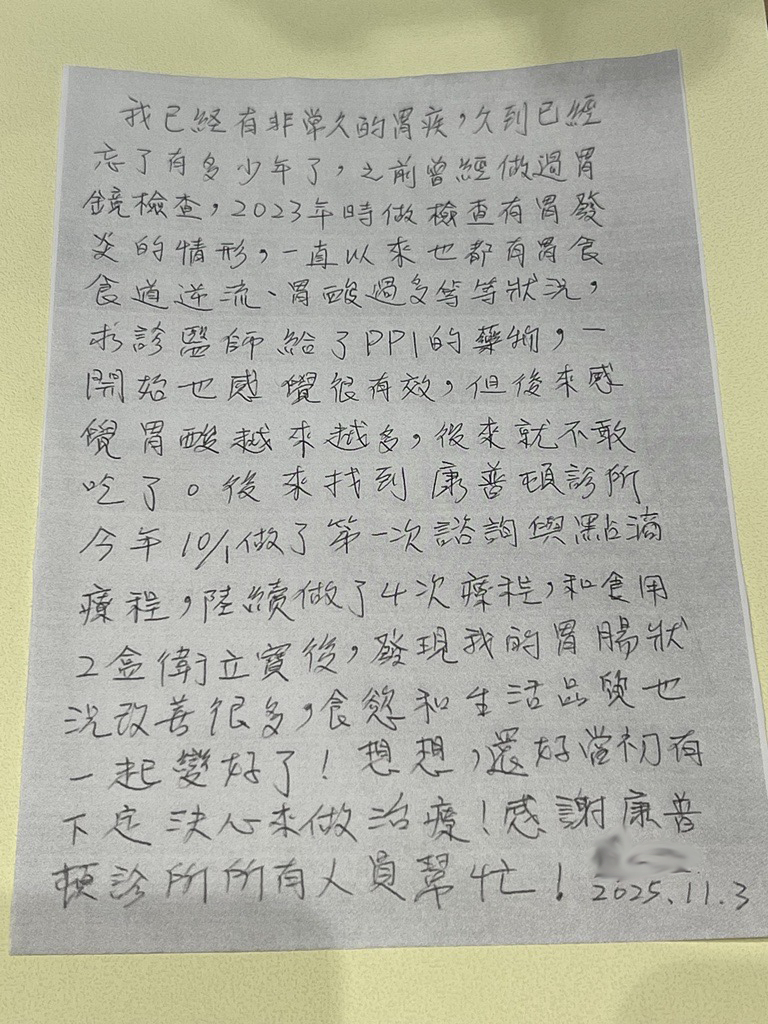 我已經有非常久的胃疾，久到已經
忘了有多少年了，之前曾經做過胃
鏡檢查，2023年時做檢查有胃發
炎的情形，一直以來也都有胃食
食道逆流、胃酸過多等等狀況，
求診醫師給了PPI的藥物，一
開始也感覺很有效，但後來感
覺胃酸越來越多，後來就不敢
吃了。後來找到康普頓診所
今年10/1做了第一次諮詢與點滴
療程，陸續做了4次療程，和食用
2盒衛立寶後，發現我的胃腸狀
況改善很多，食慾和生活品質也
一起變好了！想想，還好當初有
下定決心來做治療！感謝康普
頓診所所有人員幫忙！
2025.11.3